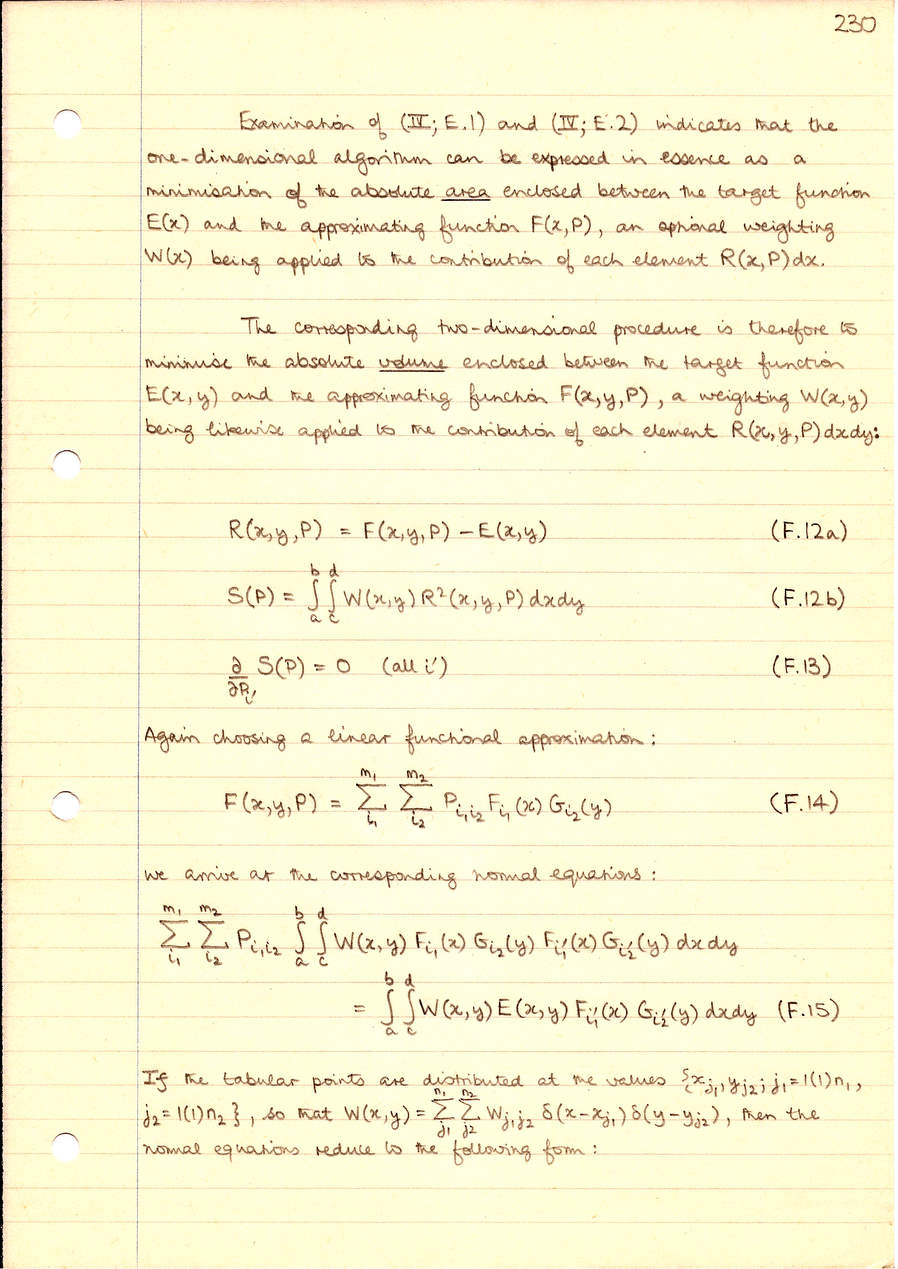 230
Examination of (IV; E.1) and (IV; E.2) indicates that the
one-dimensional algorithm can be expressed in essence as a
minimisation of the absolute area enclosed between the target function
E(x) and the approximating function F(x,P), an optional weighting
W(x) being applied to the contribution of each element R(x,P)dx.
The corresponding two-dimensional procedure is therefore to
minimise the absolute volume enclosed between the target function
E(x,y) and the approximating function F(x,y,P), a weighting W(x,y)
being likewise applied to the contribution of each element R(x,y,P)dxdy:
R(x,y,P) = F(x,y,P) – E(x,y) (F.12a)
S(P) = ∫_a^b ∫_c^d W(x,y) R²(x,y,P) dxdy (F.12b)
∂/∂P_i′ S(P) = 0 (all i′) (F.13)
Again choosing a linear functional approximation:
F(x,y,P) = Σ_{i₁}^{m₁} Σ_{i₂}^{m₂} P_{i₁i₂} F_{i₁}(x) G_{i₂}(y) (F.14)
we arrive at the corresponding normal equations:
Σ_{i₁}^{m₁} Σ_{i₂}^{m₂} P_{i₁i₂} ∫_a^b ∫_c^d W(x,y) F_{i₁}(x) G_{i₂}(y) F_{i₁′}(x) G_{i₂′}(y) dxdy
= ∫_a^b ∫_c^d W(x,y) E(x,y) F_{i₁′}(x) G_{i₂′}(y) dxdy (F.15)
If the tabular points are distributed at the values {x_{j₁}, y_{j₂}; j₁=1(1)n₁,
j₂=1(1)n₂}, so that W(x,y) = Σ_{j₁}^{n₁} Σ_{j₂}^{n₂} W_{j₁j₂} δ(x–x_{j₁}) δ(y–y_{j₂}), then the
normal equations reduce to the following form: